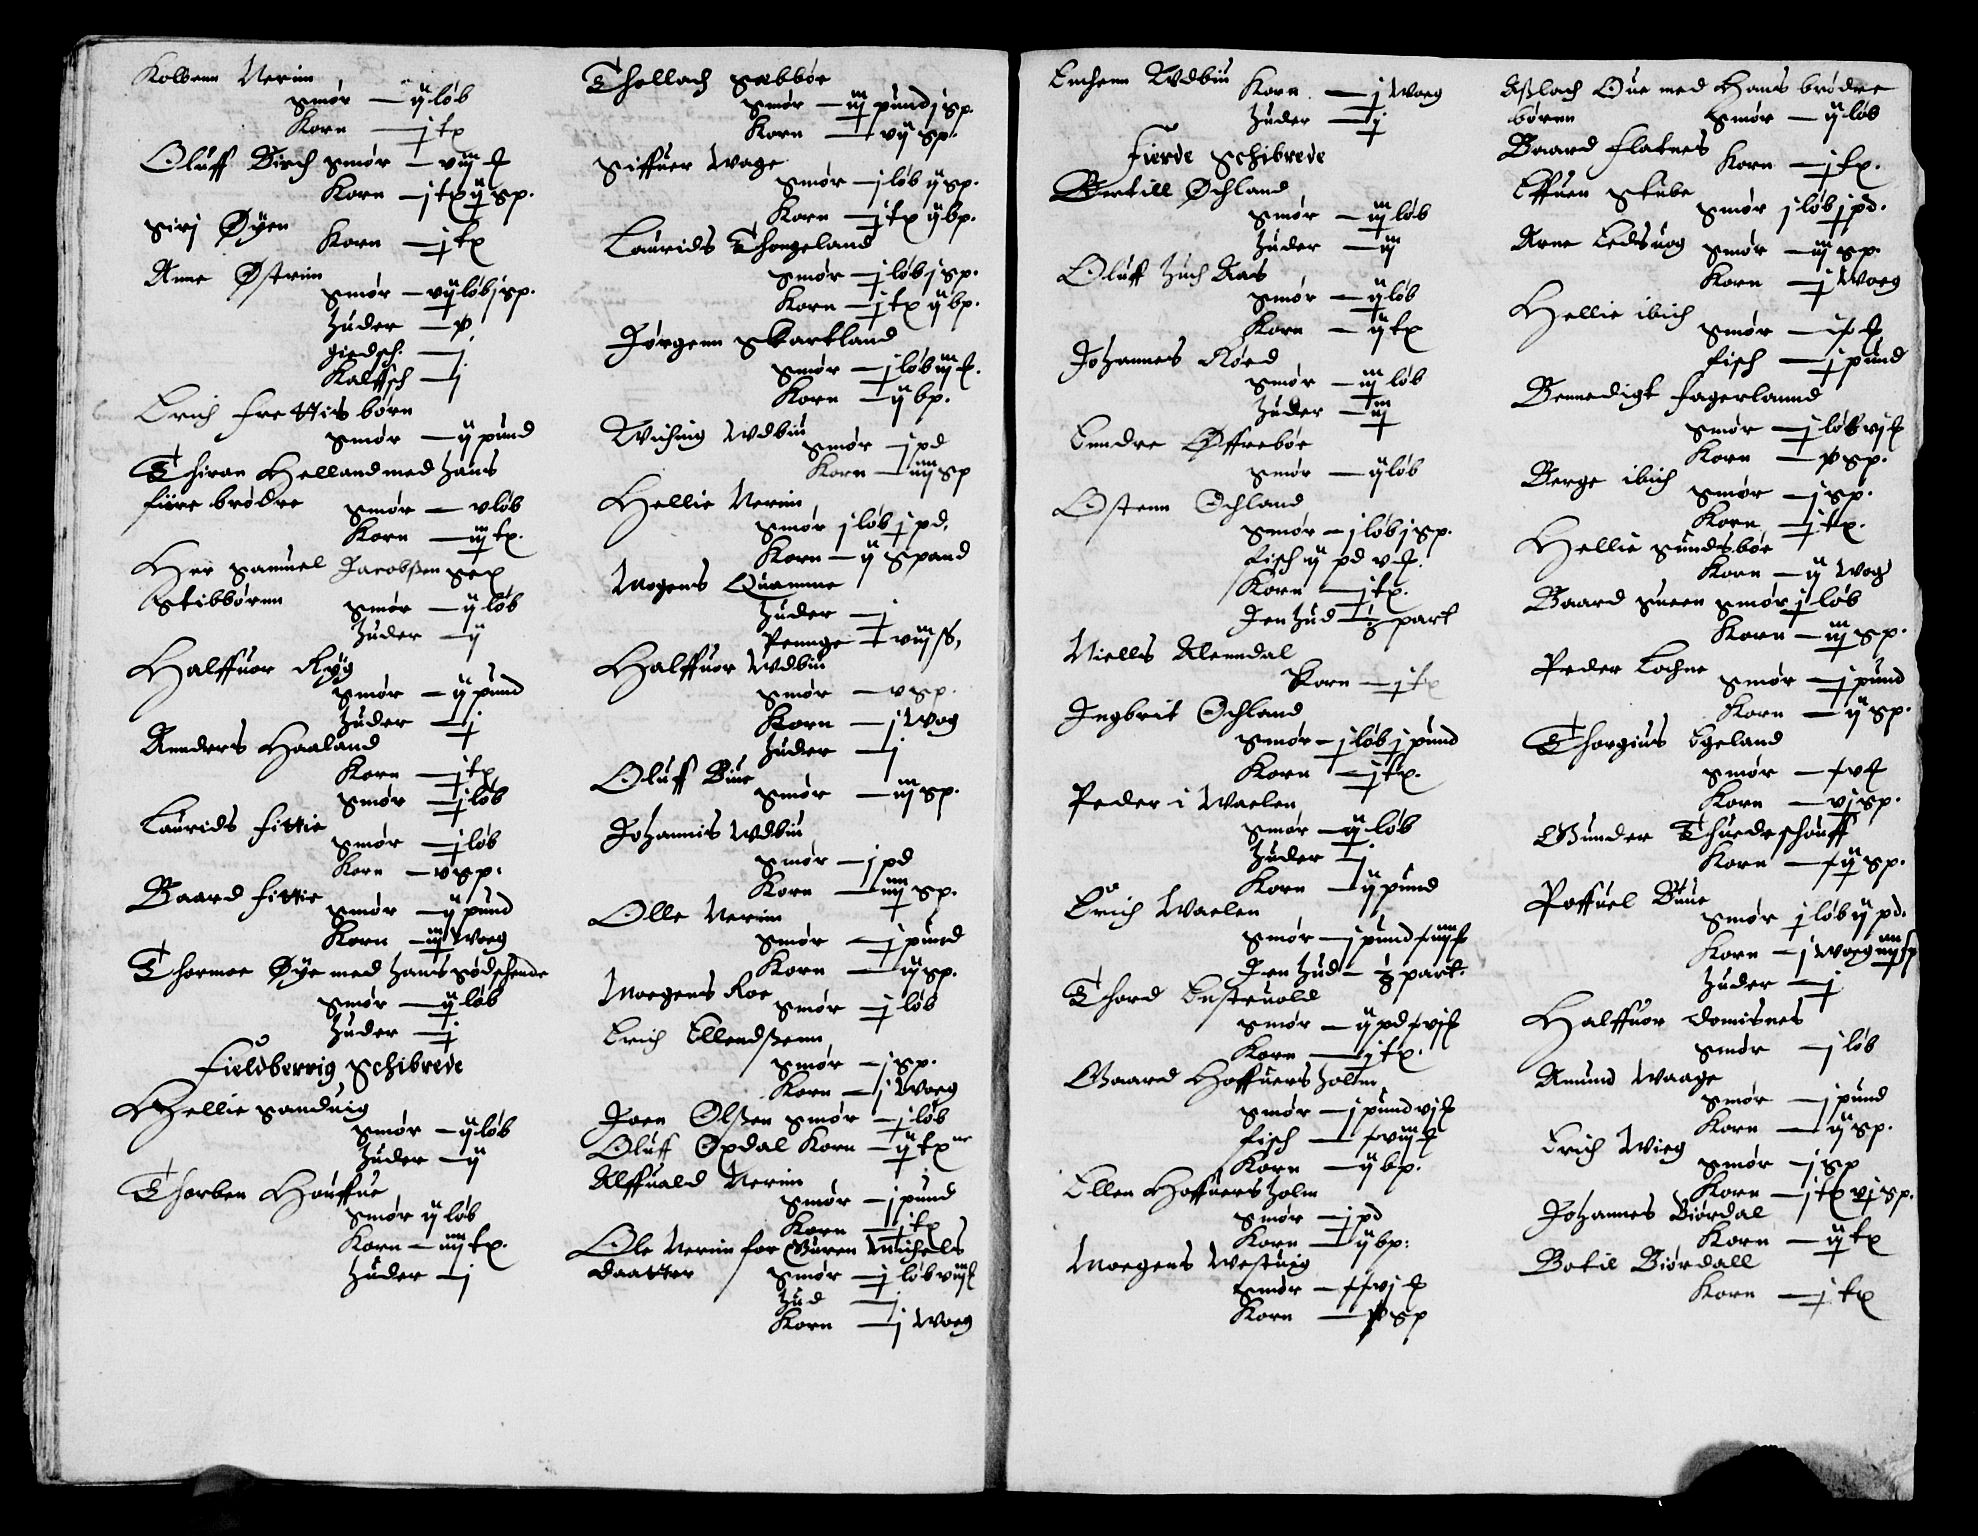 Kolbenn Nerim
Smør — ij løb
Korn — j tx
Oluff Birch Smør — viij
Korn — j tx ij sp.
Sirj Øyen
Korn — j tx
Anne Østrim
Smør — vij løb j sp.
Huder —
giedsch. — j
Kalffsch — j
Erich Frettis børn
Smør — ij pund
Thiran Helland med hans
fiire brødre Smør — v løb
Korn — iij tx.
Her Samuel Jacobßen sex
Stibbørnn Smør — ij løb
Huder — ij
Halffuor Ryg
Smør — ij pund
Huder — j
Annders Haaland
Korn — j tx
Smør — j løb
Laurids Fittie
Smør — j løb
Korn — v sp.
Baard Fittie
Smør — ij pund
Korn — iij Woeg
Thormoe Øye med hans sødschende
Smør — ij løb
Huder — j
Fieldberrig Schibrede
Hellie Sanduig
Smør — ij løb
Huder — ij
Thorben Houffue
Smør ij løb
Korn — iiij tx.
Huder — j
Thollach Sæbbøe
Smør — iij pund j sp.
Korn — vij sp.
Siffuer Wage
Smør — j løb ij sp.
Korn — j tx ij bp.
Laurids Thongeland
Smør — j løb j sp.
Korn — j tx ij bp.
Jørgenn Skartland
Smør — j løb iij
Korn — ij bp.
Wiching Wdbiu
Smør — j pd
Korn — iiij sp
Hellie Nerim
Smør j løb j pd.
Korn — ij Spand
Mogens Quamme
Huder — j
Pennge — viij ß,
Halffuor Wdbiu
Smør — v sp.
Korn — j Wog
Huder — j
Oluff Biue
Smør — iij sp.
Johannis Wdbiu
Smør — j pd
Korn — iiij sp.
Olle Nerim
Smør — j pund
Korn — ij sp.
Moegens Roe
Smør — j løb
Erich Ellendßenn
Smør — j sp.
Korn — j Woeg
Joen Olßen Smør — j løb
Oluff Opdal Korn — ij tx
Alffuald Nerim
Smør — j pund
Korn — j tx
Ole Nerim for Guren Michels
daatter Smør — j løb viij
Hud — j
Korn — j Woeg
Enchenn Wdbiu
Korn — j Woeg
Huder — j
Fierde Schibrede
Bertill Øchland
Smør — iij løb
Huder — iij
Oluff Huch Aas
Smør — ij løb
Korn — ij tx
Johannes Røed
Smør — iij løb
Huder — iij
Enndre Øffrebøe
Smør — ij løb
Ostenn Ochland
Smør — j løb j sp.
Fisch ij pd v
Korn — j tx.
Jen hud — 1/8 part
Niells Alenndal
Korn — j tx
Ingbrit Ochland
Smør — j løb j pund
Korn — j tx.
Peder i Waelen
Smør — ij løb
Huder — j
Korn — ij pund
Erich Waelen
Smør — j pund
Jen Hud — 1/8 part.
Thord Enstuold
Smør — ij pd
Korn — j tx.
Gaard Hoffuersholm
Smør — j pund vj
Fisch —
Korn — ij bp.
Ellen Hoffuersholm
Smør — j pd
Korn — ij bp.
Moegens Westuig
Smør —
Korn — sp
Aßlach Oue med Hans brødre
børnn Smør — ij løb
Baard Flatnes
Korn — j tx.
Effuen Stube
Smør j løb j pd.
Arne Ledsuog
Smør — iij sp.
Korn — j Woeg
Hellie ibich
Smør —
Fisch — j pund
Bennedigt Fagerlannd
Smør — j løb vj
Korn — sp.
Berge ibich
Smør — j sp.
Korn — j tx.
Hellie Sundsbøe
Korn — ij Wog
Baard Sneen Smør j løb
Korn — iij sp.
Peder Lochne
Smør — j pund
Korn — ij sp.
Thorgius Egeland
Smør —
Korn — vj sp.
Gunder Thuedeschouff
Korn — sp.
Poffuel Biue
Smør j løb ij pd.
Korn — j Woeg iiij sp
Huder — j
Halffuor Domisnes
Smør — j løb
Amund Waage
Smør — j pund
Korn — ij sp.
Erich Wieg
Smør — j sp
Korn — j tx vj sp.
Johannes Biørdal
Korn — ij tx
Botil Biørdall
Korn — j tx